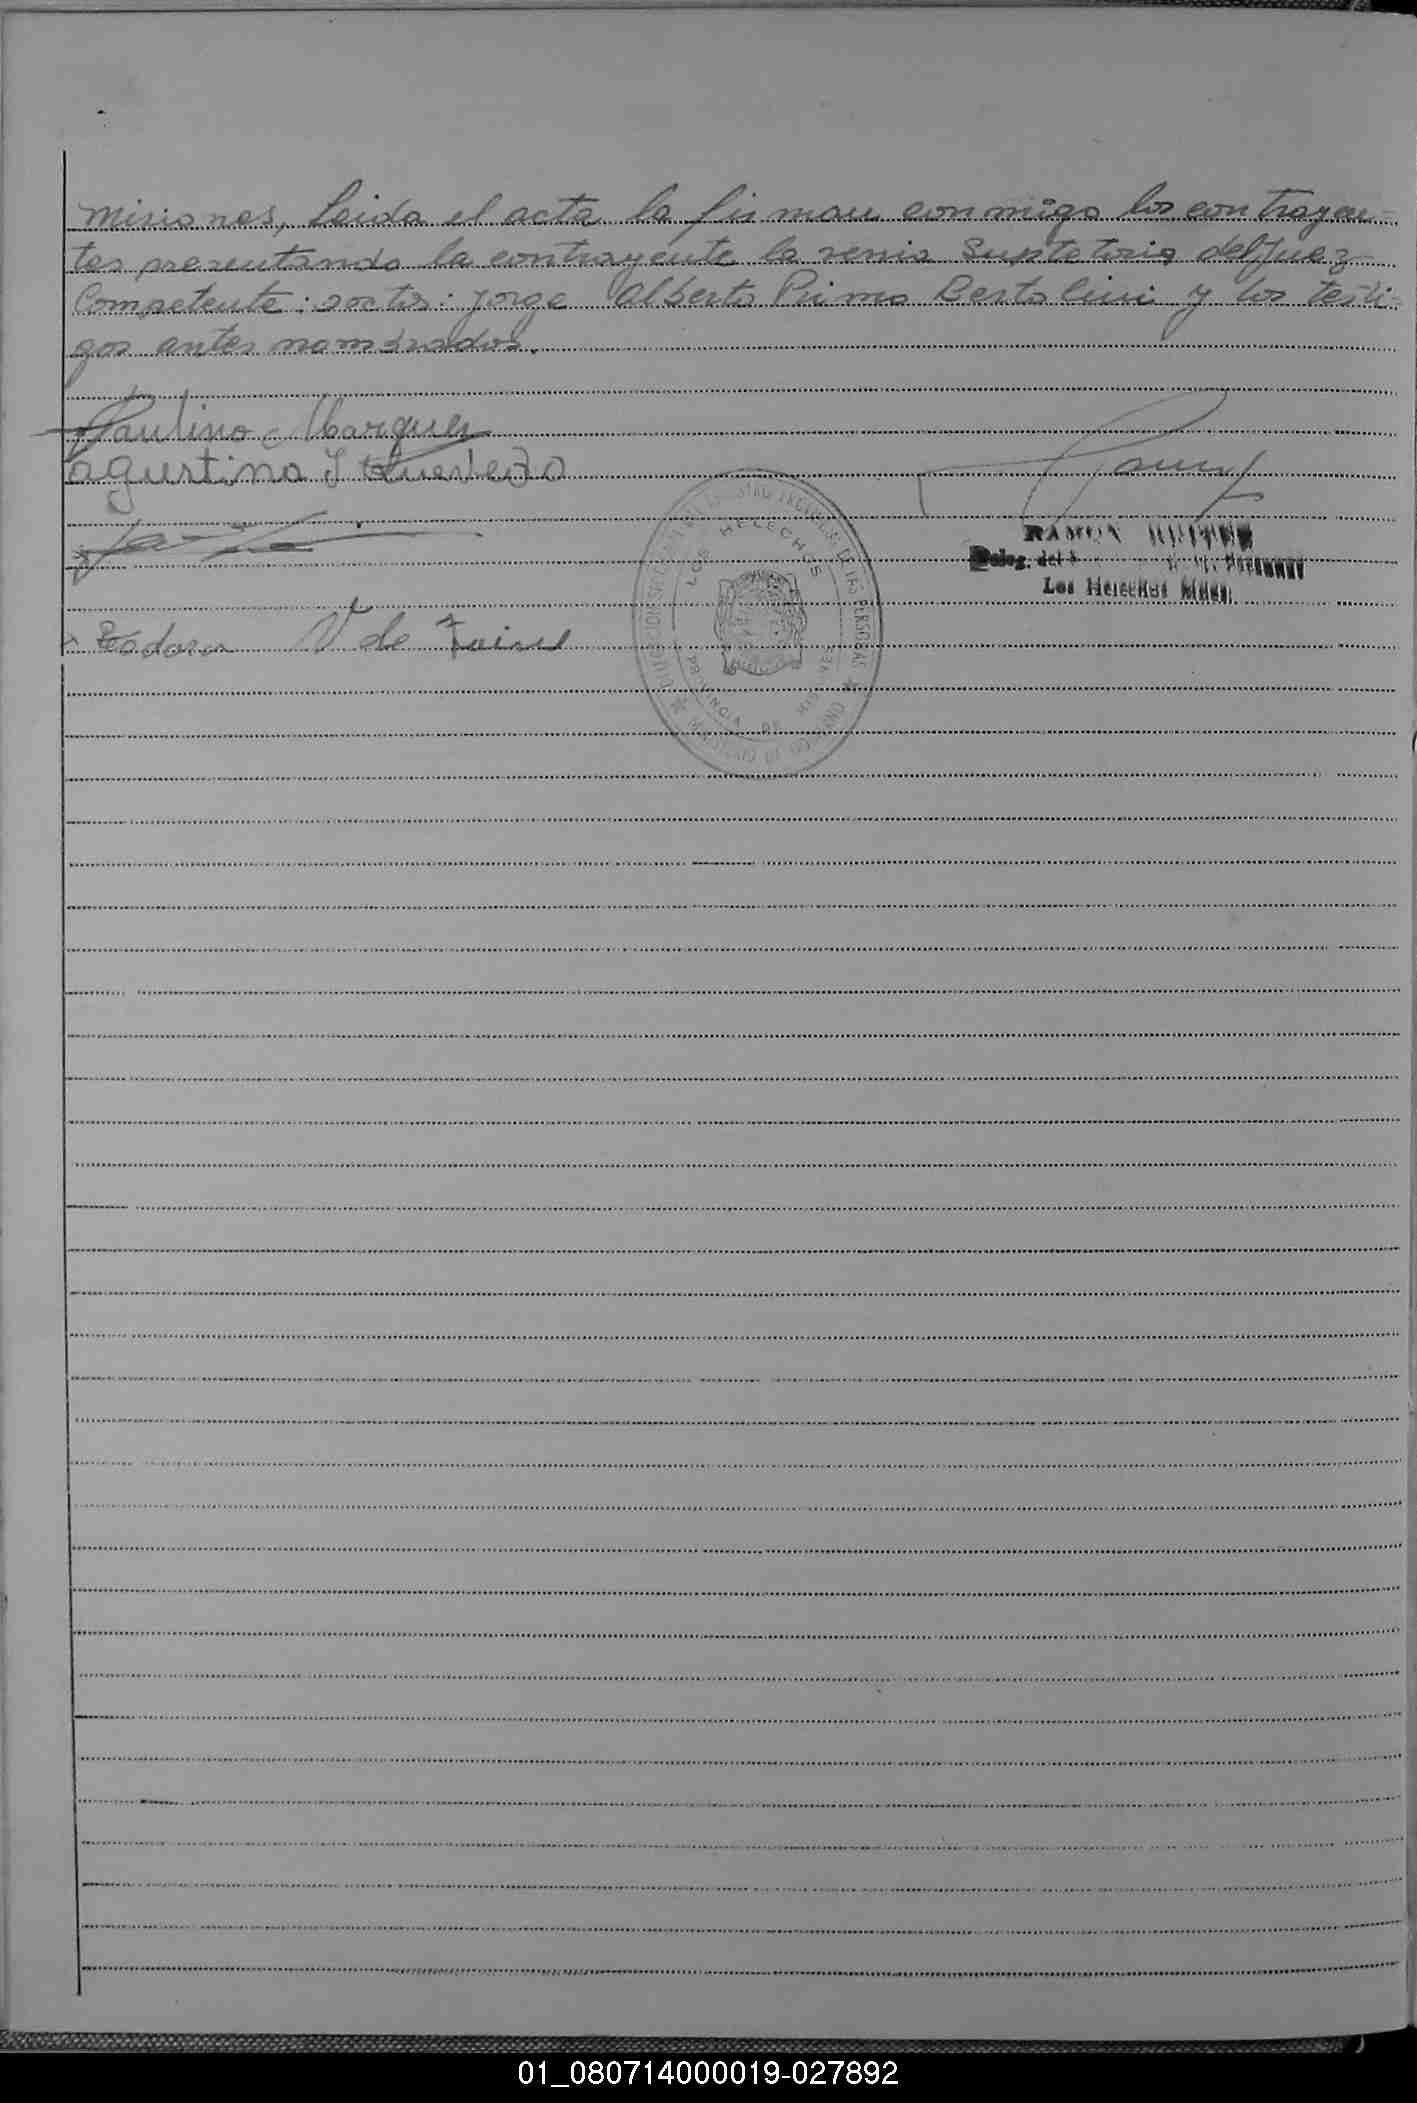 Misiones, Leida el acta la firman conmigo los contrayen-
tes presentando la contrayente la venia Supletoria del Juez
Competente: doctor: Jorge Alberto Primo Bertolini y los testi-
gos antes nombrados.
Paulino Marquez
agustina I Quevedo
RAMON
Deleg. del
Los Helechos Mnes.
LOS HELECHOS
PROVINCIA DE MISIONES
DE LAS PERSONAS
V de
01_080714000019-027892